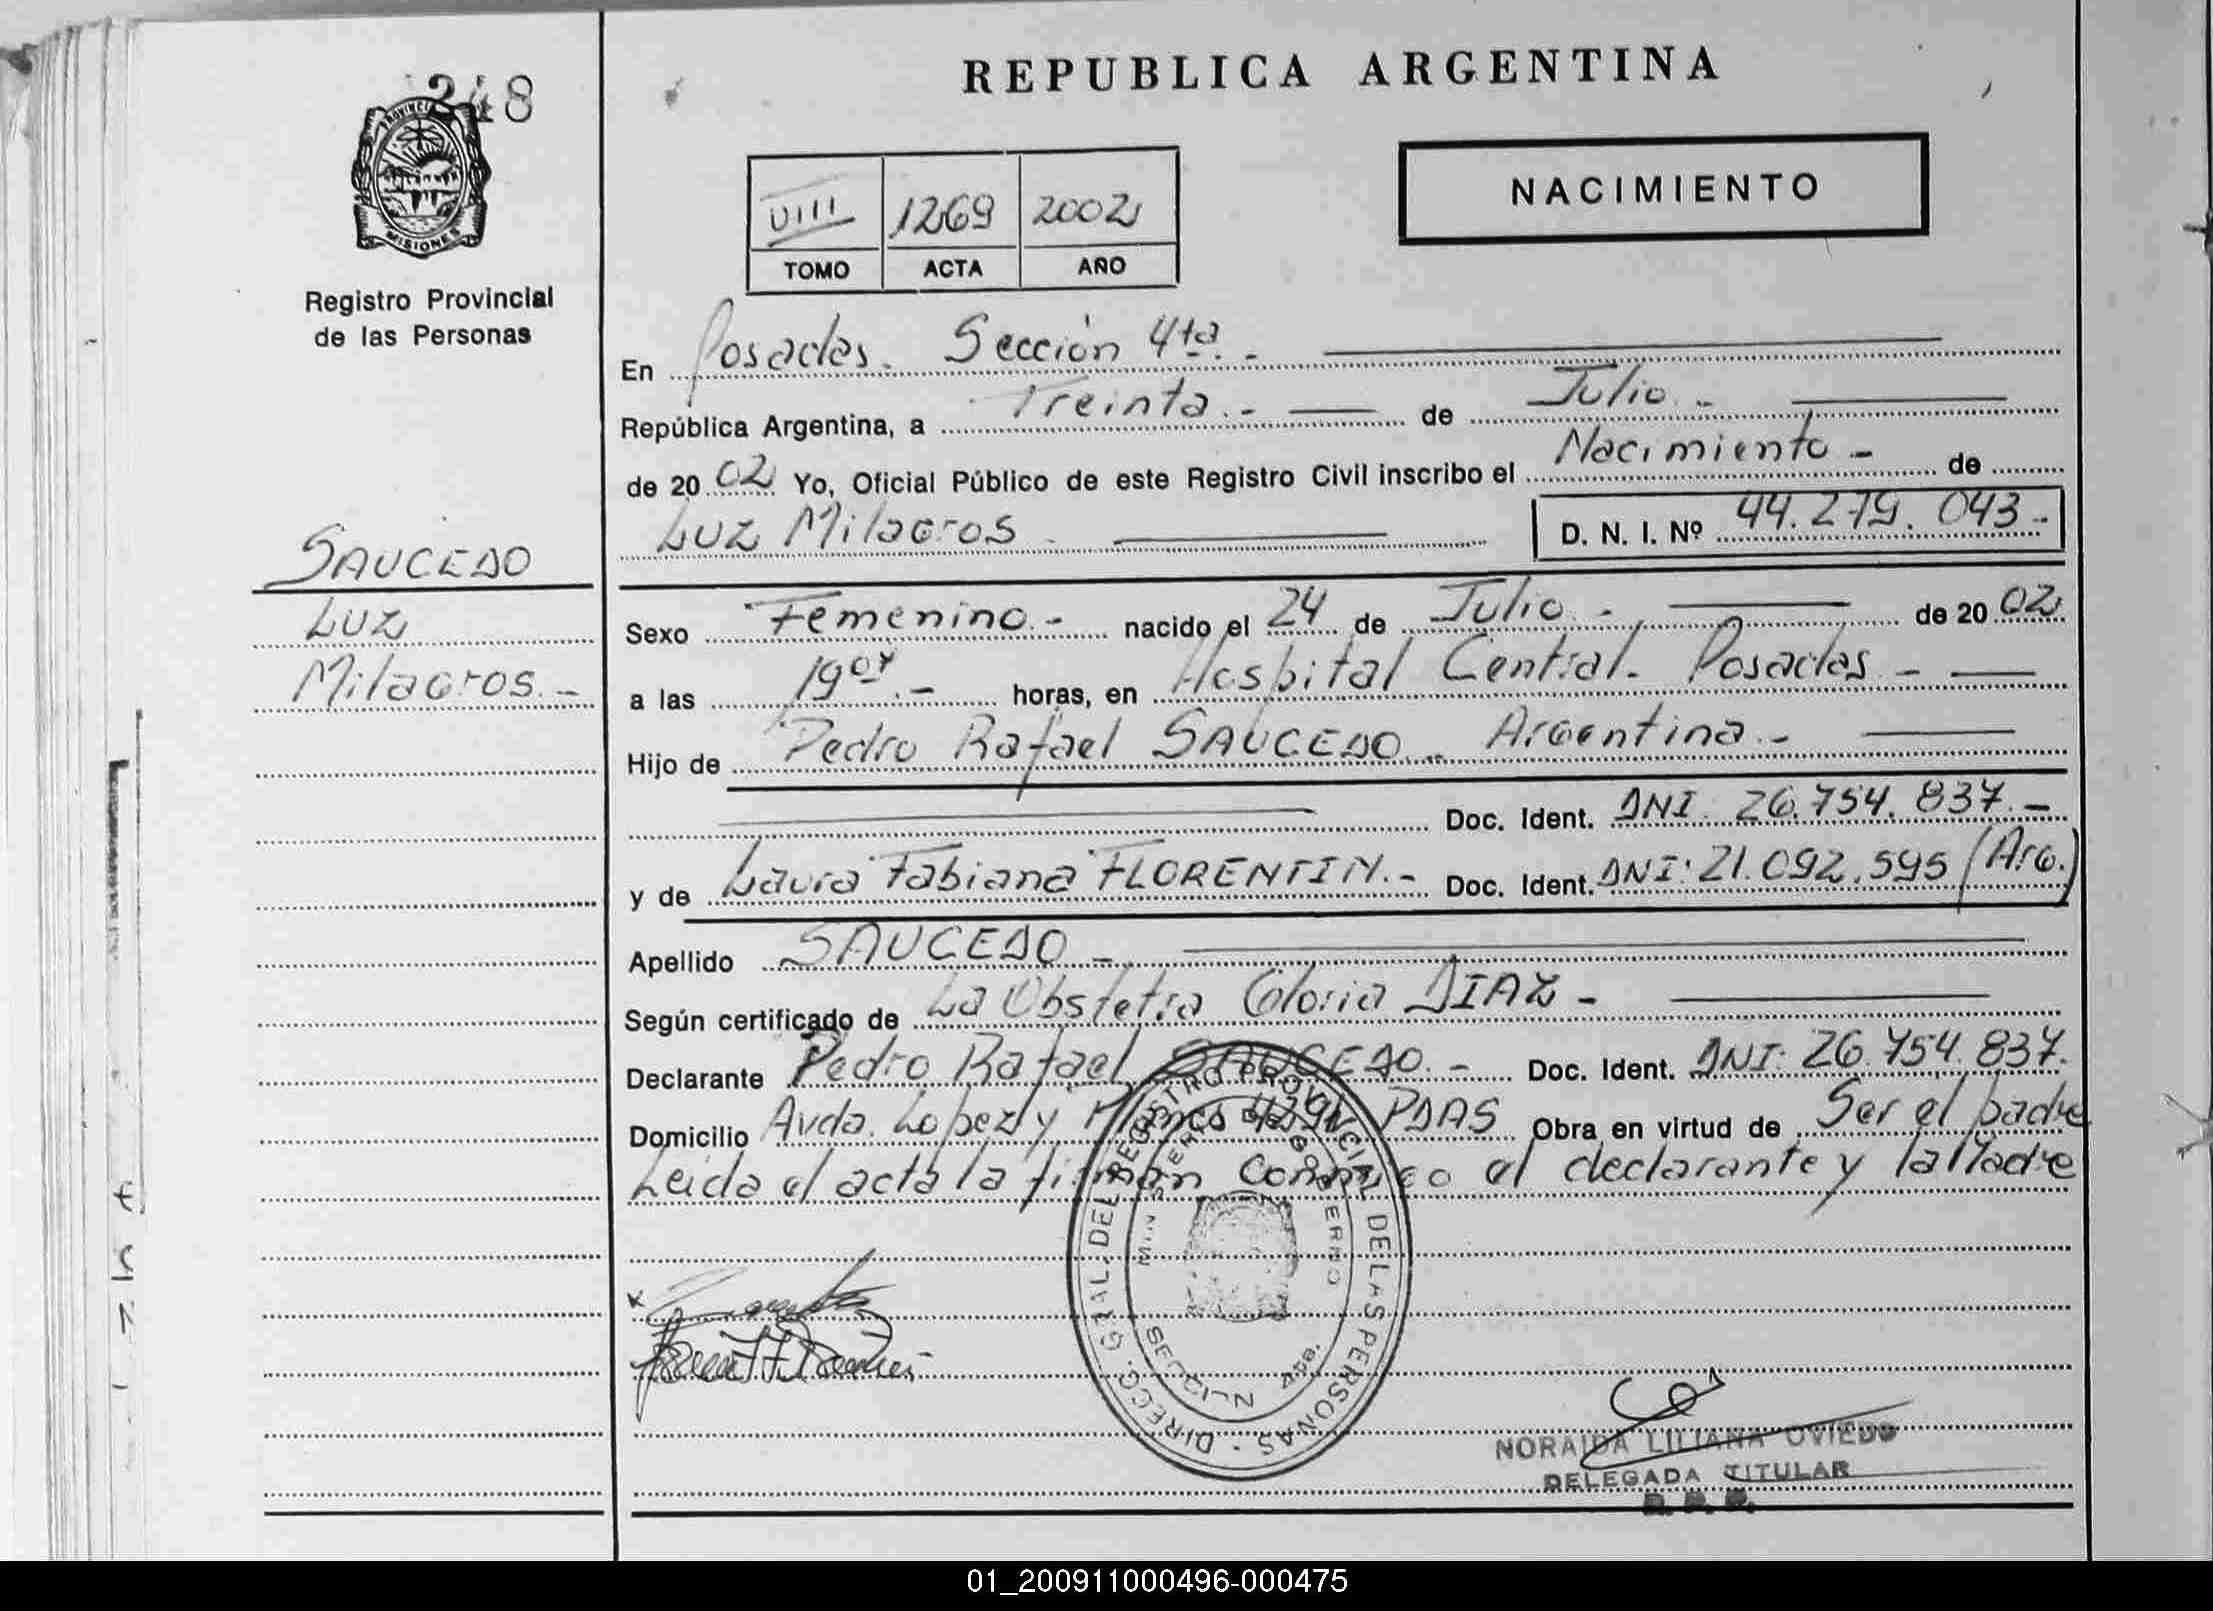 248
PROVINCIA
MISIONES
Registro Provincial
de las Personas
SAUCEDO
Luz
Milagros.-
REPUBLICA ARGENTINA
VIII 1269 2002
TOMO ACTA AÑO
NACIMIENTO
En Posadas. Sección 4ta.-
República Argentina, a Treinta.- de Julio.-
de 2002 Yo, Oficial Público de este Registro Civil inscribo el Nacimiento - de
Luz Milagros. D. N. I. Nº 44.279.043.-
Sexo Femenino.- nacido el 24 de Julio.- de 2002
a las 19 horas, en Hospital Central. Posadas.-
Hijo de Pedro Rafael SAUCEDO.- Argentina.-
Doc. Ident. DNI. 26.754.837.-
y de Laura Fabiana FLORENTIN.- Doc. Ident. DNI: 21.092.595 (Arg.)
Apellido SAUCEDO.-
Según certificado de La Obstetra Gloria DIAZ -
Declarante Pedro Rafael SAUCEDO.- Doc. Ident. DNI: 26.754.837.
Domicilio Avda. Lopez y Planes PDAS Obra en virtud de Ser el padre
Leida el acta la firman conmigo el declarante y la Madre
DIRECC. GRAL. DEL REGISTRO PROVINCIAL DE LAS PERSONAS
MINISTERIO DE GOBIERNO
SECCION 4ta.
NORAIDA LILIANA OVIEDO
DELEGADA TITULAR
01_200911000496-000475